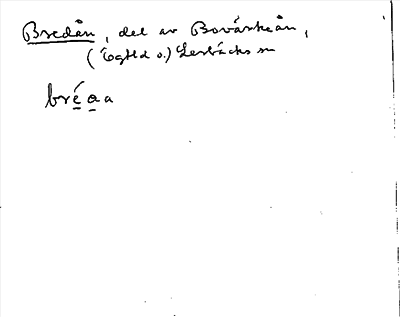 Bredån, del av Bovårkeån,
(Ägtld o.) Lerbäcks sn
bréaa